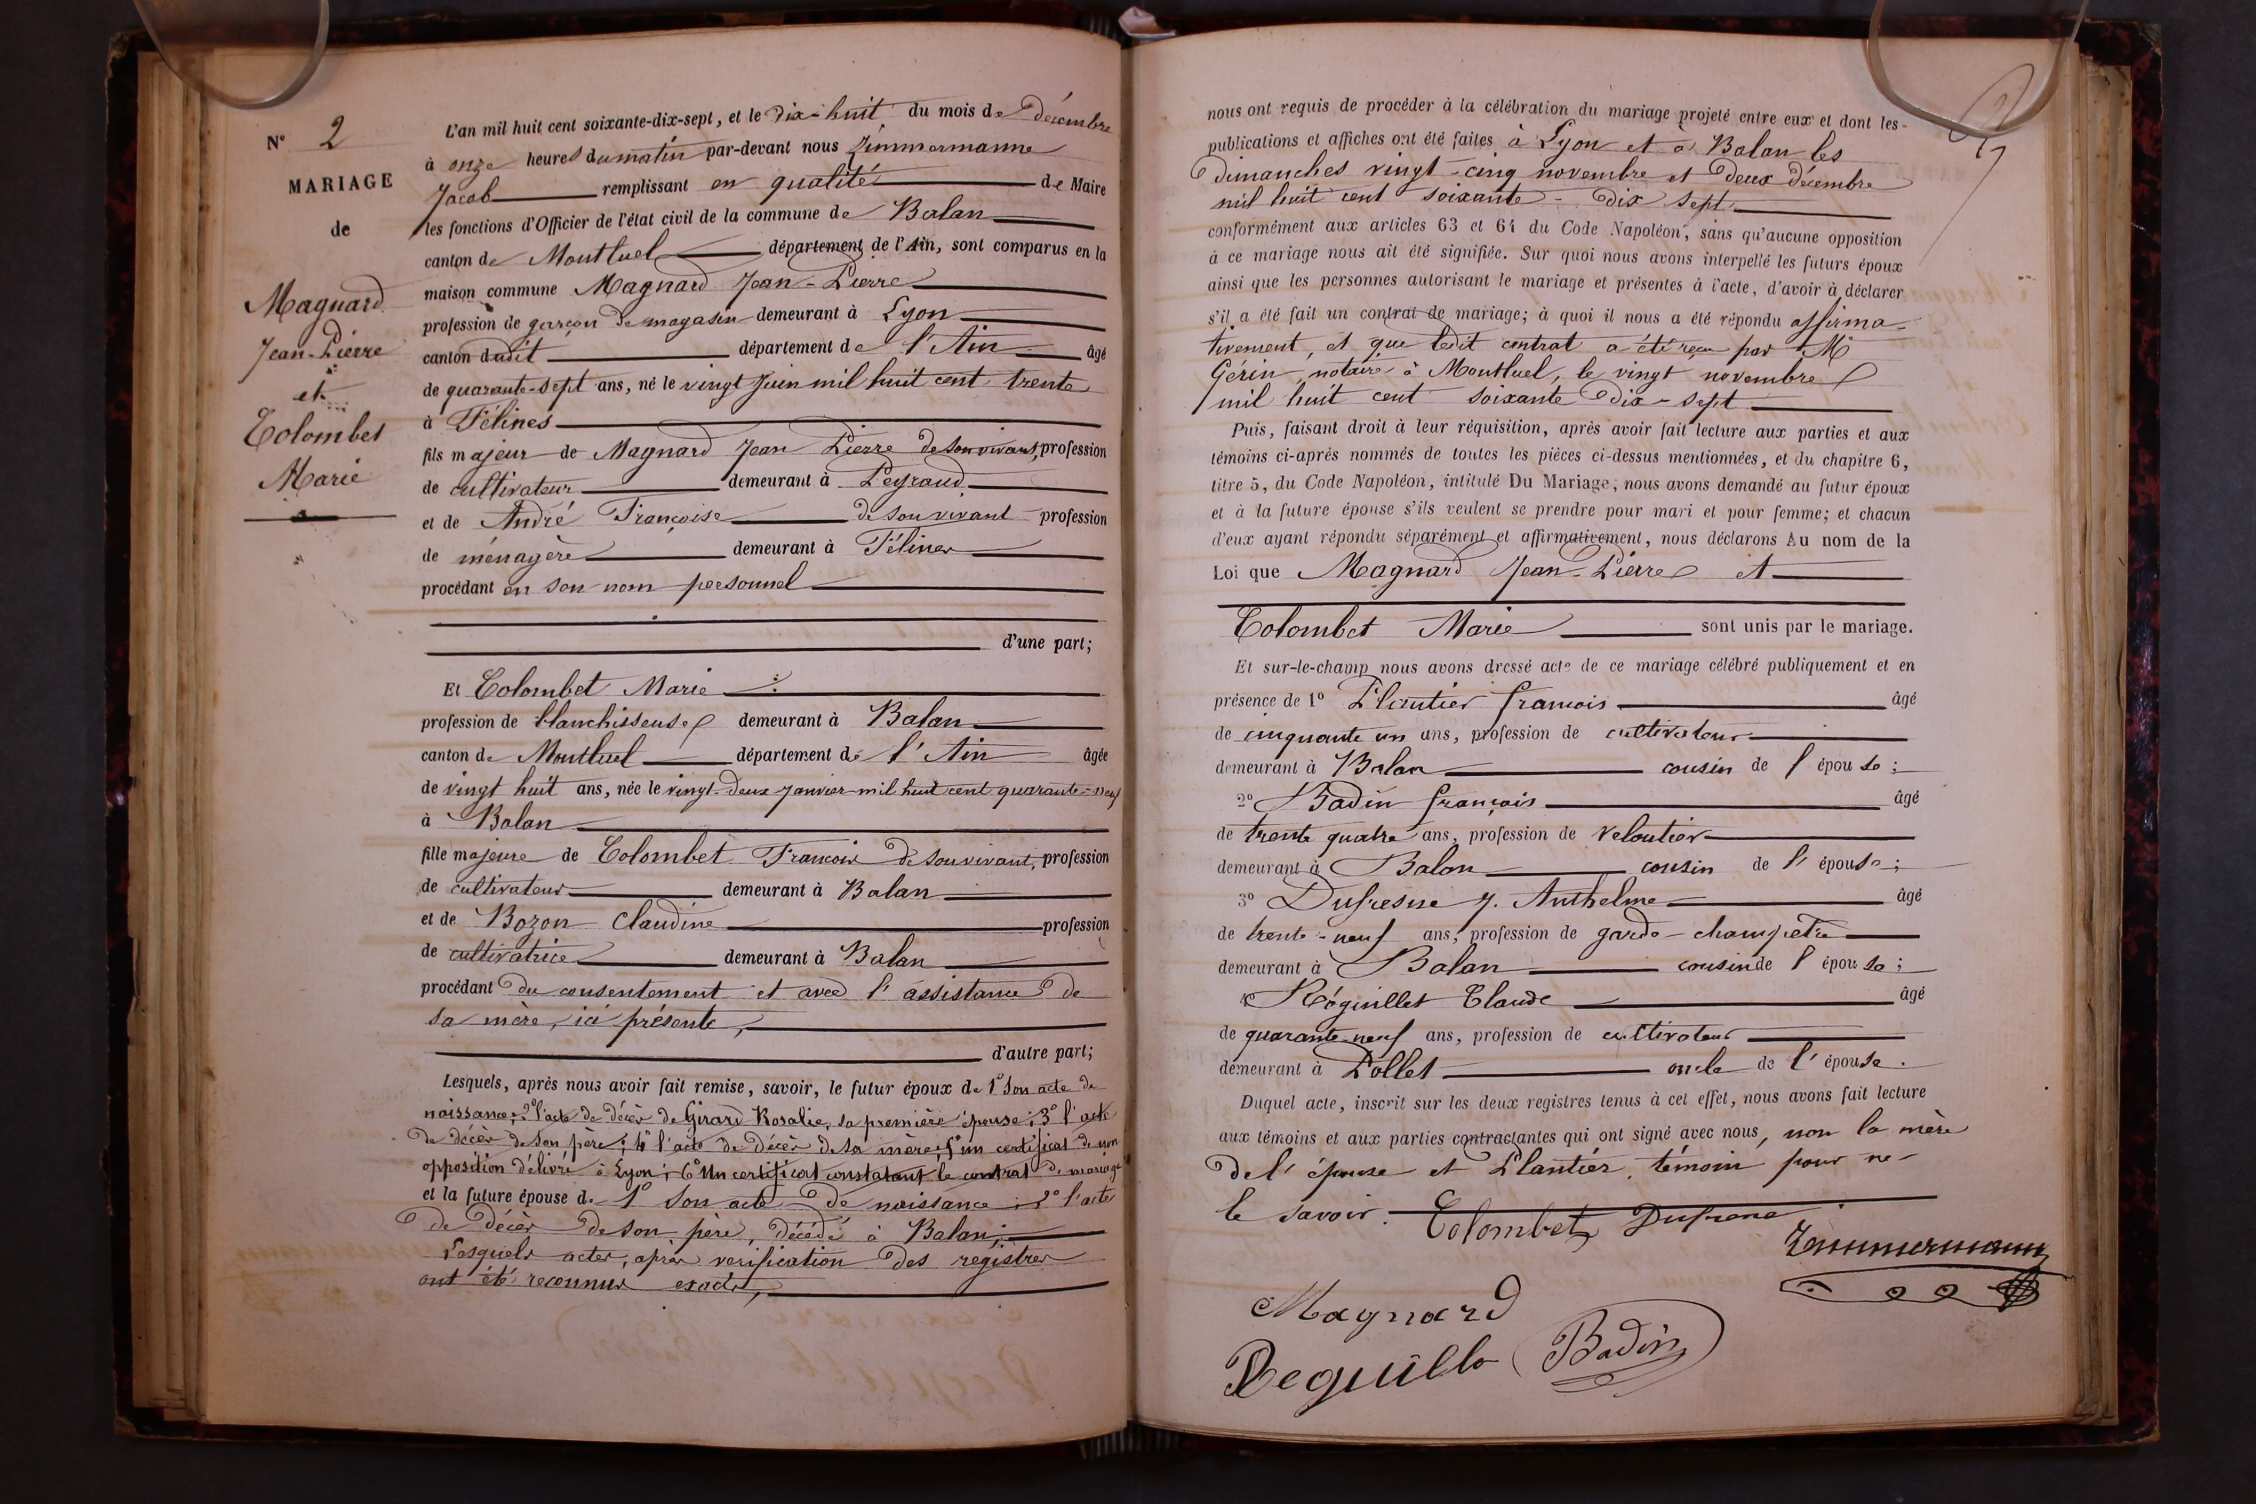 N° 2
MARIAGE
de
Magnard
Jean-Pierre
et
Colombet
Marie
L'an mil huit cent soixante-dix-sept, et le dix-huit du mois de décembre
à onze heures du matin par-devant nous Zimmermanne
Jacob remplissant en qualité de Maire
les fonctions d'Officier de l'état civil de la commune de Balan
canton de Montluel département de l'Ain, sont comparus en la
maison commune Magnard Jean-Pierre
profession de garçon de magasin demeurant à Lyon
canton dudit département de l'Ain âgé
de quarante-sept ans, né le vingt Juin mil huit cent trente
à Félines
fils majeur de Magnard Jean Pierre de son vivant, profession
de cultivateur demeurant à Peyraud
et de André Françoise de son vivant profession
de ménagère demeurant à Félines
procédant en son nom personnel
d'une part;
Et Colombet Marie
profession de blanchisseuse demeurant à Balan
canton de Montluel département de l'Ain âgée
de vingt huit ans, née le vingt-deux Janvier mil huit cent quarante-neuf
à Balan
fille majeure de Colombet Francois de son vivant, profession
de cultivateur demeurant à Balan
et de Bozon Claudine profession
de cultivatrice demeurant à Balan
procédant du consentement et avec l'assistance de
sa mère, ici présente,
d'autre part;
Lesquels, après nous avoir fait remise, savoir, le futur époux de 1° Son acte de
naissance; 2° l'acte de décès de Girard Rosalie, sa première épouse; 3° l'acte
de décès de son père; 4° l'acte de décès de sa mère; 5° un certificat de non
opposition délivré à Lyon; 6° Un certificat constatant le contrat de mariage
et la future épouse d. 1° Son acte de naissance; 2° l'acte
de décès de son père, décédé à Balan;
Lesquels actes, après verification des registres
ont été reconnus exacts,
nous ont requis de procéder à la célébration du mariage projeté entre eux et dont les
publications et affiches ont été faites à Lyon et à Balan les
dimanches vingt-cinq novembre et deux décembre
mil huit cent soixante-dix sept
conformément aux articles 63 et 64 du Code Napoléon, sans qu'aucune opposition
à ce mariage nous ait été signifiée. Sur quoi nous avons interpellé les futurs époux
ainsi que les personnes autorisant le mariage et présentes à l'acte, d'avoir à déclarer
s'il a été fait un contrat de mariage; à quoi il nous a été répondu affirma-
tivement, et que ledit contrat a été reçu par Me
Gérin, notaire à Montluel, le vingt novembre
mil huit cent soixante dix-sept
Puis, faisant droit à leur réquisition, après avoir fait lecture aux parties et aux
témoins ci-après nommés de toutes les pièces ci-dessus mentionnées, et du chapitre 6,
titre 5, du Code Napoléon, intitulé Du Mariage, nous avons demandé au futur époux
et à la future épouse s'ils veulent se prendre pour mari et pour femme; et chacun
d'eux ayant répondu séparément et affirmativement, nous déclarons Au nom de la
Loi que Magnard Jean-Pierre et
Colombet Marie sont unis par le mariage.
Et sur-le-champ nous avons dressé acte de ce mariage célébré publiquement et en
présence de 1° Plantier francois âgé
de cinquante un ans, profession de cultivateur
demeurant à Balan cousin de l'épouse;
2° Badin françois âgé
de trente quatre ans, profession de veloutier
demeurant à Balan cousin de l'épouse;
3° Dufresne J. Anthelme âgé
de trente-neuf ans, profession de garde-champetre
demeurant à Balan cousin de l'épouse;
4° Réguillet Claude âgé
de quarante-neuf ans, profession de cultivateur
demeurant à Pollet oncle de l'épouse.
Duquel acte, inscrit sur les deux registres tenus à cet effet, nous avons fait lecture
aux témoins et aux parties contractantes qui ont signé avec nous, non la mère
de l'épouse et Plantier, témoin pour ne
le savoir.
Colombet Dufrene
Zimmermann
Magnard
Reguille Badin